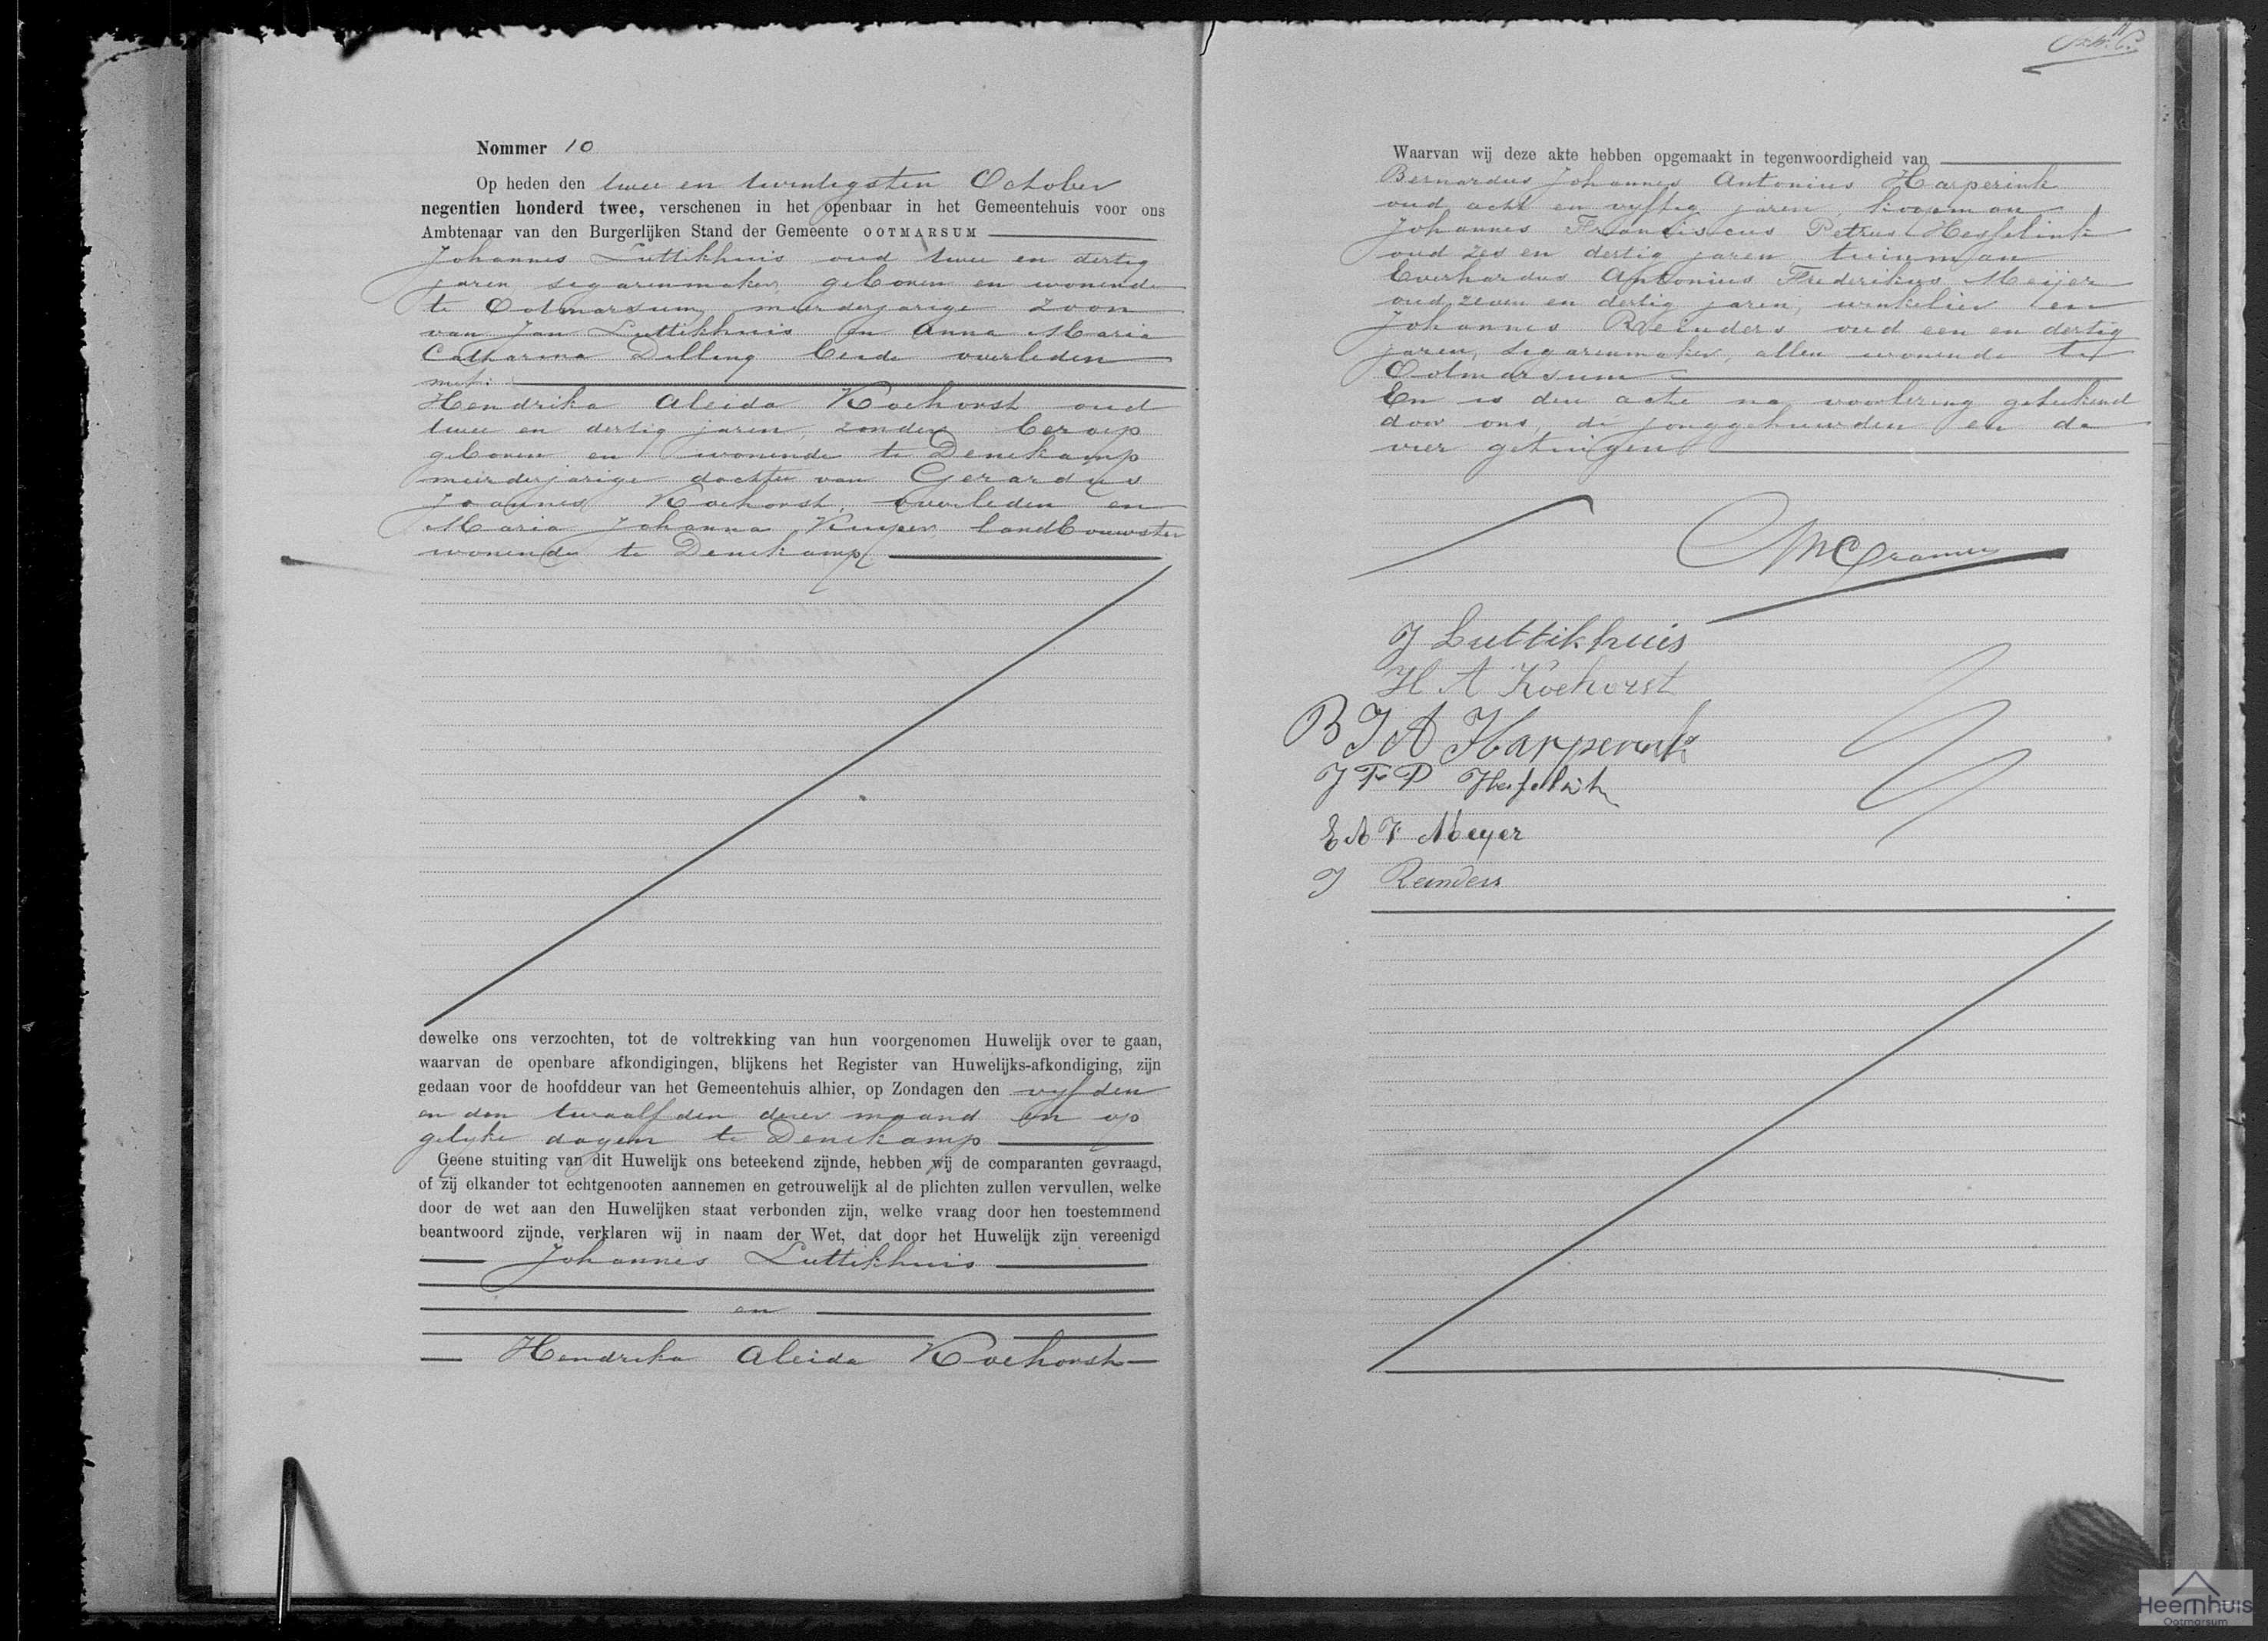 Nommer 10
Op heden den twee en twintigsten October
negentien honderd twee, verschenen in het openbaar in het Gemeentehuis voor ons
Ambtenaar van den Burgerlijken Stand der Gemeente OOTMARSUM
Johannes Luttikhuis oud twee en dertig
jaren sigarenmaker, geboren en wonende
te Ootmarsum, meerderjarige zoon
van Jan Luttikhuis en Anna Maria
Catharina Dilling beide overleden
met:
Hendrika Aleida Koehorst oud
twee en dertig jaren, zonder beroep
geboren en wonende te Denekamp
meerderjarige dochter van Gerardus
Joannes Koehorst, overleden en
Maria Johanna Kuiper, landbouwster
wonende te Denekamp
dewelke ons verzochten, tot de voltrekking van hun voorgenomen Huwelijk over te gaan,
waarvan de openbare afkondigingen, blijkens het Register van Huwelijks-afkondiging, zijn
gedaan voor de hoofddeur van het Gemeentehuis alhier, op Zondagen den vyfden
en den twaalfden dezer maand en op
gelyke dagen te Denekamp
Geene stuiting van dit Huwelijk ons beteekend zijnde, hebben wij de comparanten gevraagd,
of zij elkander tot echtgenooten aannemen en getrouwelijk al de plichten zullen vervullen, welke
door de wet aan den Huwelijken staat verbonden zijn, welke vraag door hen toestemmend
beantwoord zijnde, verklaren wij in naam der Wet, dat door het Huwelijk zijn vereenigd
Johannes Luttikhuis
en
Hendrika Aleida Koehorst
Waarvan wij deze akte hebben opgemaakt in tegenwoordigheid van
Bernardus Johannes Antonius Harperink
oud acht en vyftig jaren, koopman,
Johannes Franciscus Petrus Hesselink
oud zes en dertig jaren tuinman
Everhardus Antonius Frederikus Meijer
oud zeven en dertig jaren, winkelier en
Johannes Reinders oud een en dertig
jaren, sigarenmaker, allen wonende te
Ootmarsum
En is deze acte na voorlezing geteekend
door ons, de jonggehuwden en de
vier getuigen
Cramer
J Luttikhuis
H A Koehorst
B J A Harperink
J F P Hesselink
E A F Meyer
J Reinders
Heemhuis
Ootmarsum